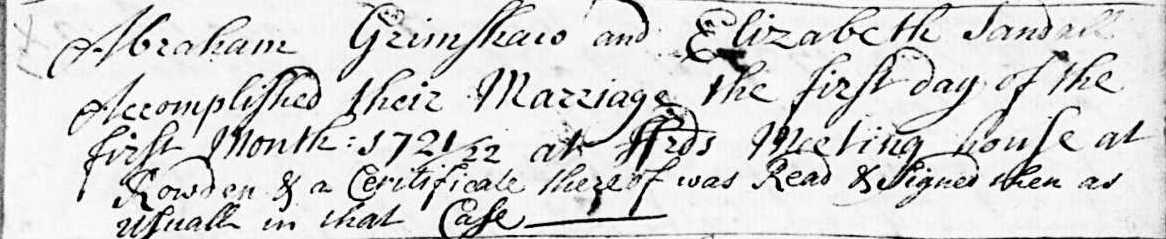 Abraham Grimshaw and Elizabeth Sandall
Accomplished their Marriage the first day of the
first Month: 1721/22 at ffrds Meeting house at
Rowden & a Certificate thereof was Read & Signed then as
usuall in that Case